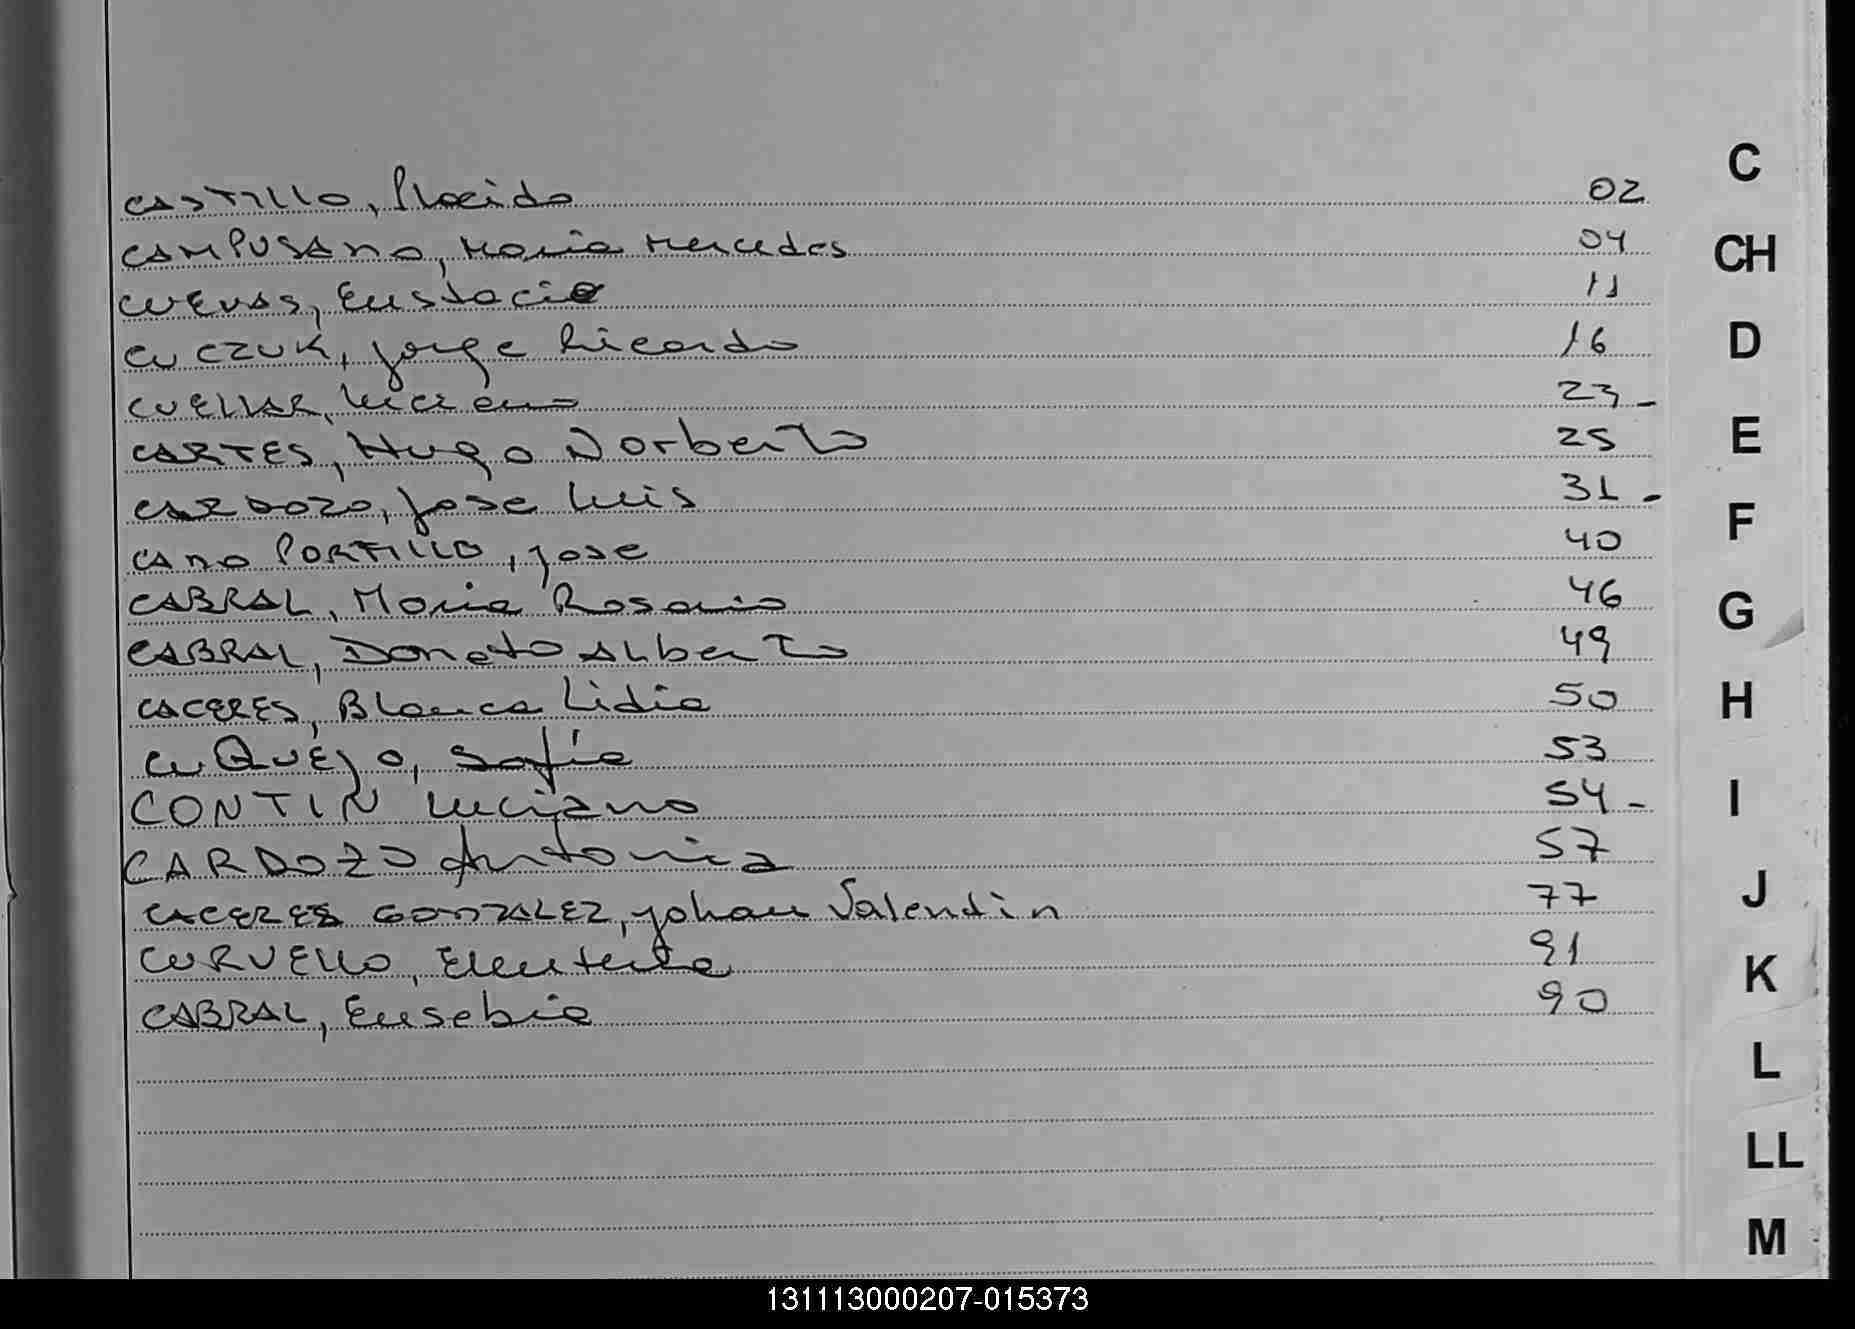 CASTILLO, Placido 02
CAMPUSANO, Maria Mercedes 04
CUEVAS, Eustacio 11
CUCZUK, Jorge Ricardo 16
CUELLAR, Luciano 23 -
CARTES, Hugo Norberto 25
CARDOZO, Jose Luis 31 -
CANO PORTILLO, Jose 40
CABRAL, Maria Rosario 46
CABRAL, Donato Alberto 49
CACERES, Blanca Lidia 50
CUQUEJO, Sofia 53
CONTIN Luciano 54 -
CARDOZO Antonia 57
CACERES GONZALEZ, Johan Valentin 77
CURVELLO, 91
CABRAL, Eusebia 90
C
CH
D
E
F
G
H
I
J
K
L
LL
M
131113000207-015373